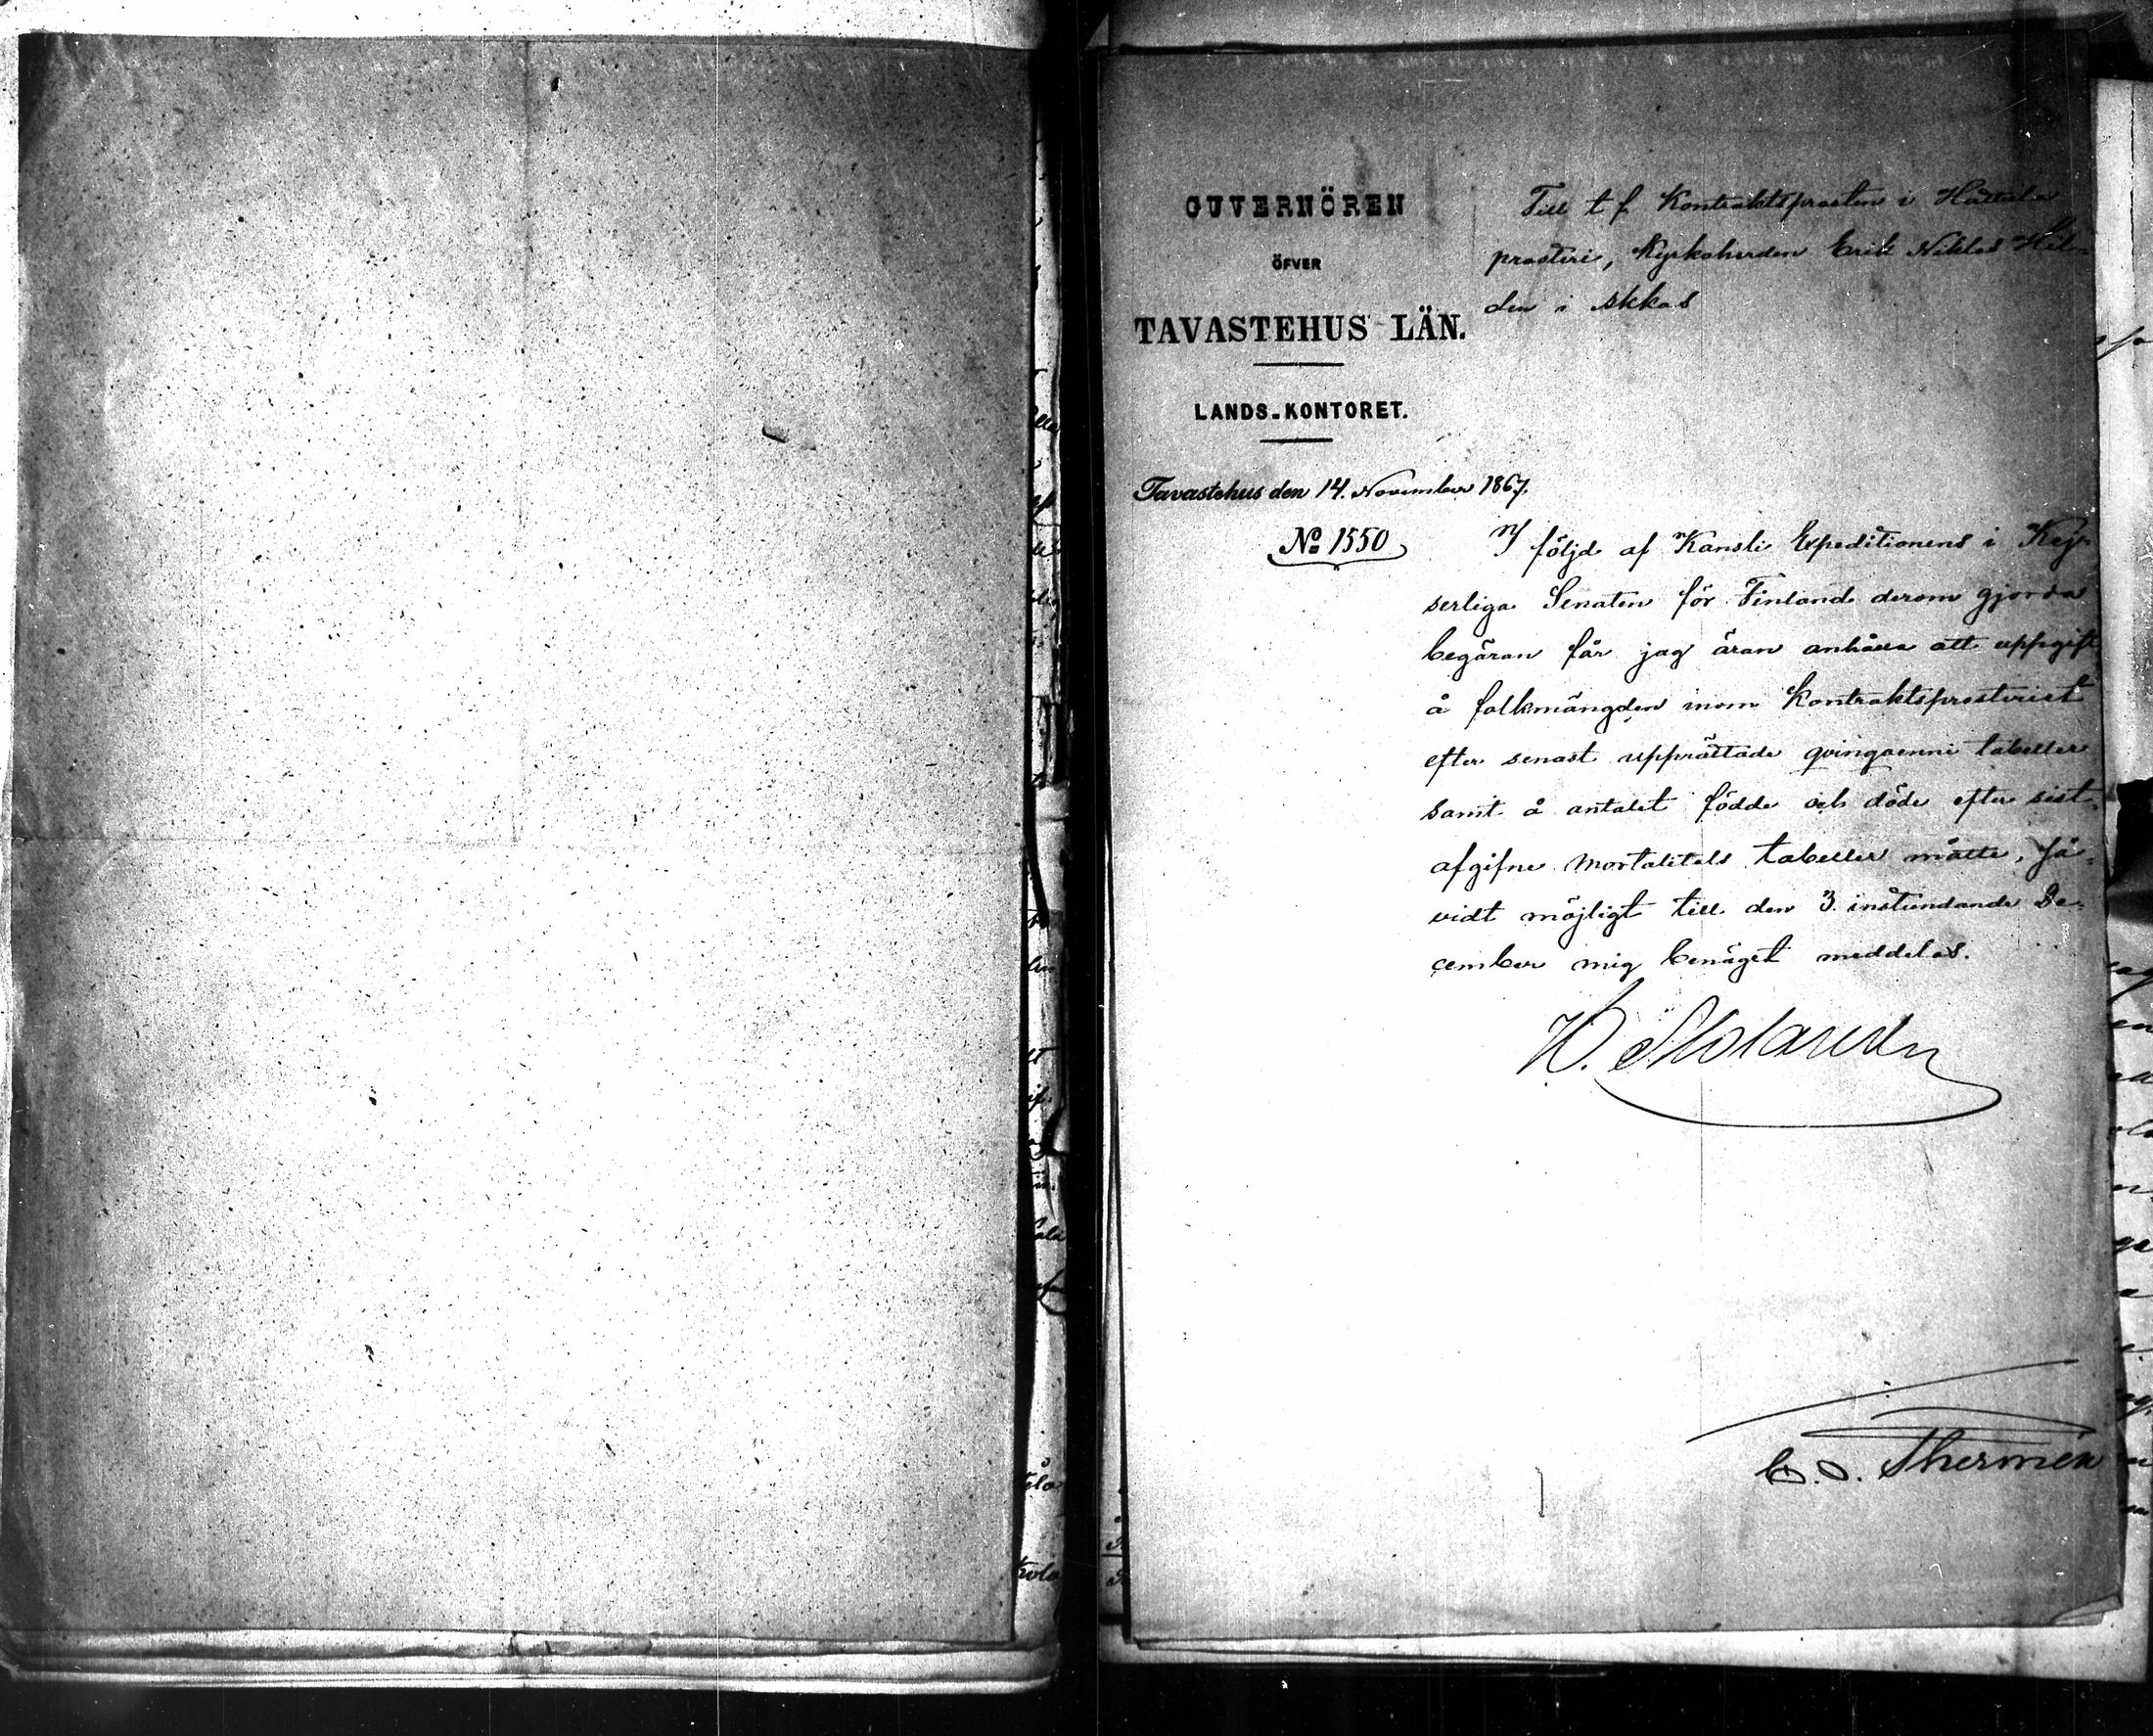 GUVERNÖREN
ÖFVER
TAVASTEHUS LÄN.
LANDS-KONTORET.
Tavastehus den 14. November 1867.
No 1550
Till t f Kontraktsprosten i Hattula
prosteri, Kyrkoherden Erik Niklas Hel-
den i Akkas
I följd af Kansli Expeditionens i Kej-
serliga Senaten för Finland derom gjorda
begäran får jag äran anhålla att uppgift
å folkmängden inom Kontraktsprosteriet
efter senast upprättade qvinqvenni tabeller
samt å antalet födde och döde efter sist
afgifne mortalitets tabeller måtte, så-
vidt möjligt till den 3 instundande De-
cember mig benäget meddelas.
C. O. Thermén